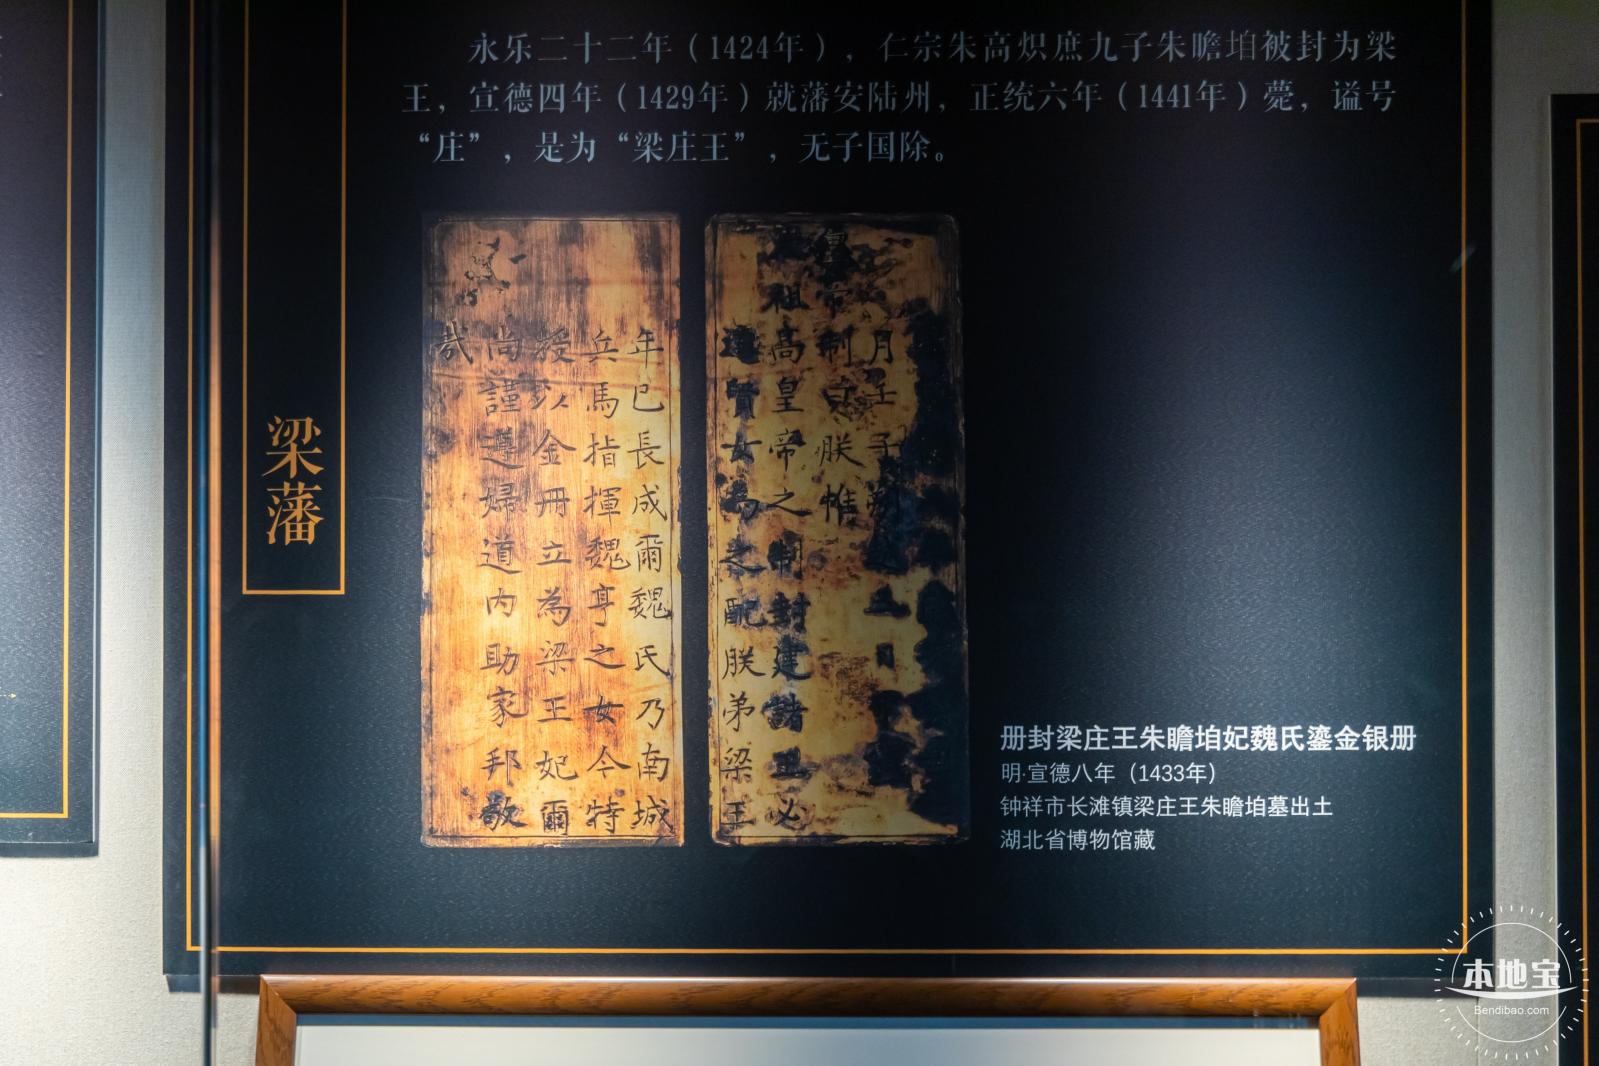 永乐二十二年（1424年），仁宗朱高炽庶九子朱瞻垍被封为梁
王，宣德四年（1429年）就藩安陆州，正统六年（1441年）薨，谥号
“庄”，是为“梁庄王”，无子国除。
梁藩
月壬子朔越
日
皇帝制曰朕惟
祖高皇帝之制封建諸王必
選賢女為之配朕弟梁王
年已長成爾魏氏乃南城
兵馬指揮魏亨之女今特
授以金冊立為梁王妃爾
尚謹遵婦道內助家邦敬
哉
册封梁庄王朱瞻垍妃魏氏鎏金银册
明·宣德八年（1433年）
钟祥市长滩镇梁庄王朱瞻垍墓出土
湖北省博物馆藏
本地宝
Bendibao.com